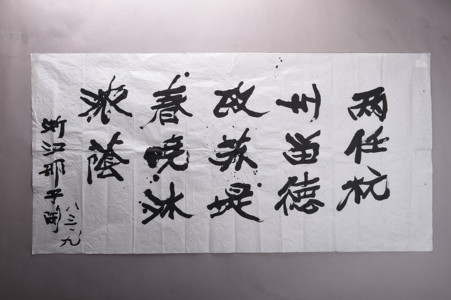 两任杭
主留德
政苏堤
春晓沐
浓荫
浙江
八三.九